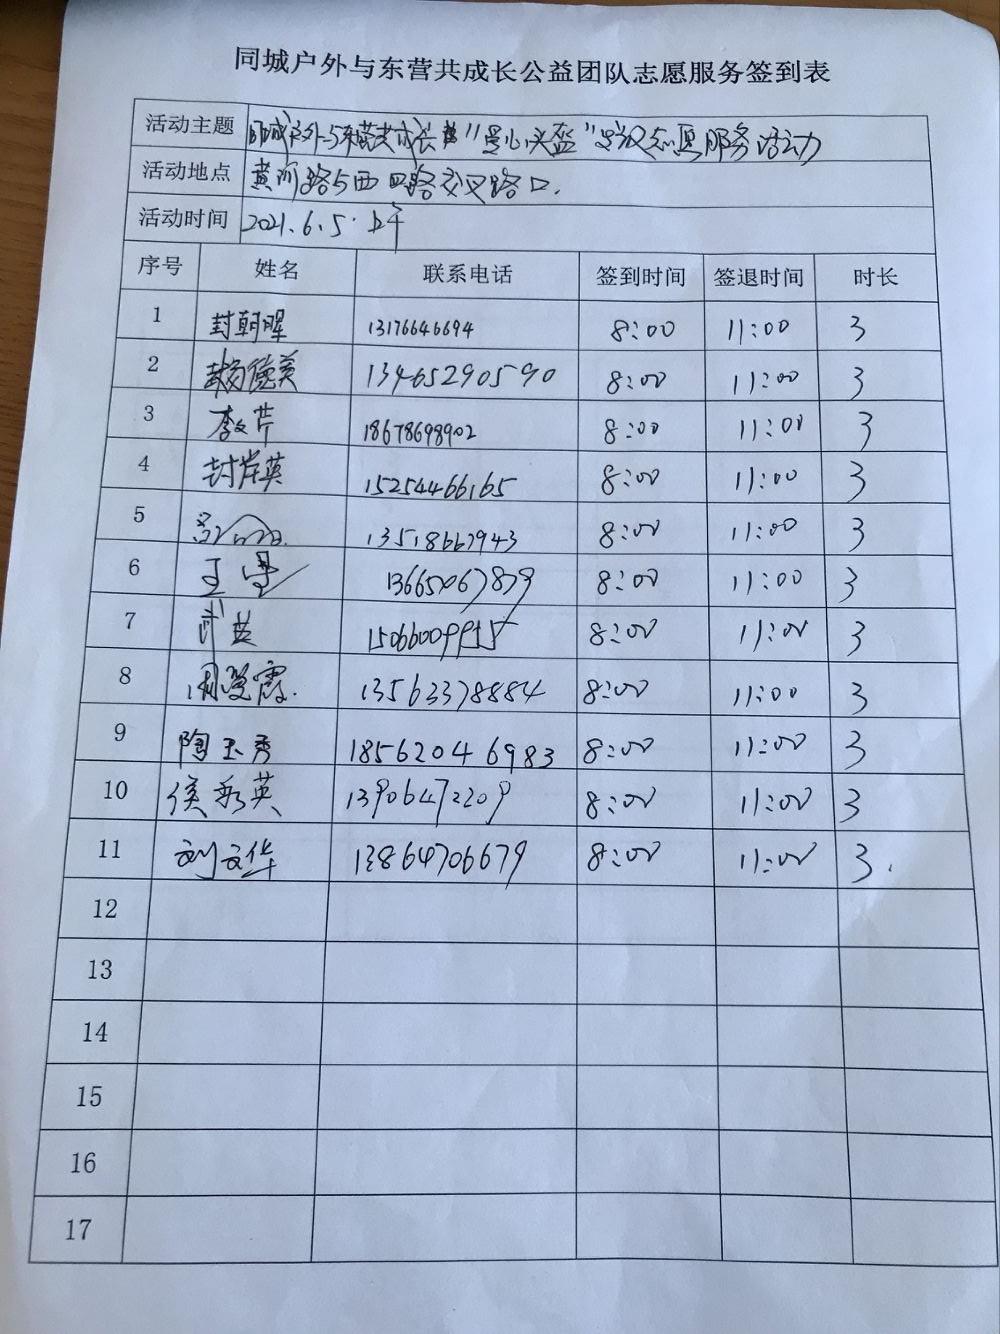 同城户外与东营共成长公益团队志愿服务签到表
活动主题 同城户外与东营共成长 "爱心头盔" 志愿服务活动
活动地点 黄河路与西四路交叉路口.
活动时间 2021.6.5.上午
序号 姓名 联系电话 签到时间 签退时间 时长
1 封朝晖 13176646694 8:00 11:00 3
2 杨德英 13465290590 8:00 11:00 3
3 李文芹 18678698902 8:00 11:00 3
4 封岸英 15254466165 8:00 11:00 3
5 13518667943 8:00 11:00 3
6 王 13665067879 8:00 11:00 3
7 武英 15066009915 8:00 11:00 3
8 周爱霞. 13563378884 8:00 11:00 3
9 陶玉秀 18562046983 8:00 11:00 3
10 侯秀英 13906472209 8:00 11:00 3
11 刘文华 13864706679 8:00 11:00 3.
12
13
14
15
16
17